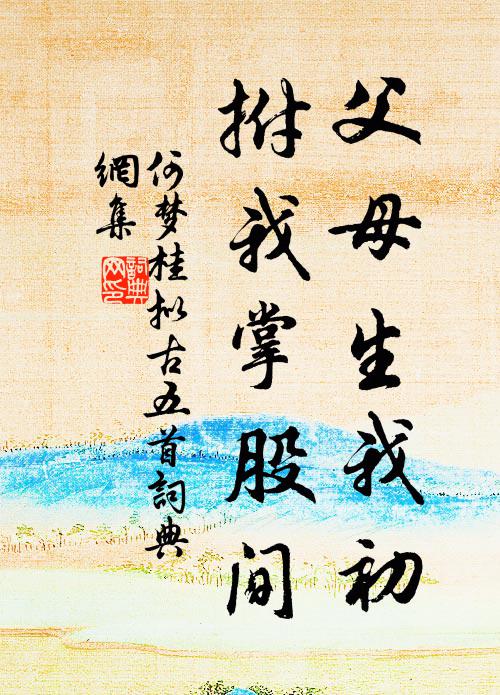 父母生我初
拊我掌股間
何梦桂拟古五首詞典
網集
詞典
网印